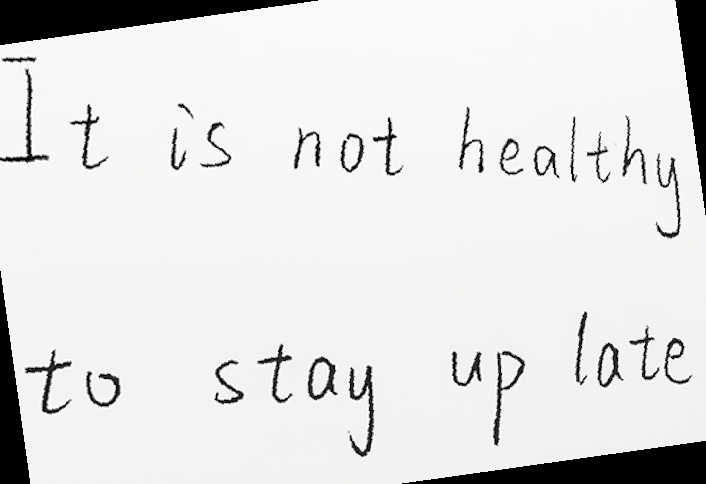 It is not healthy
to stay up late